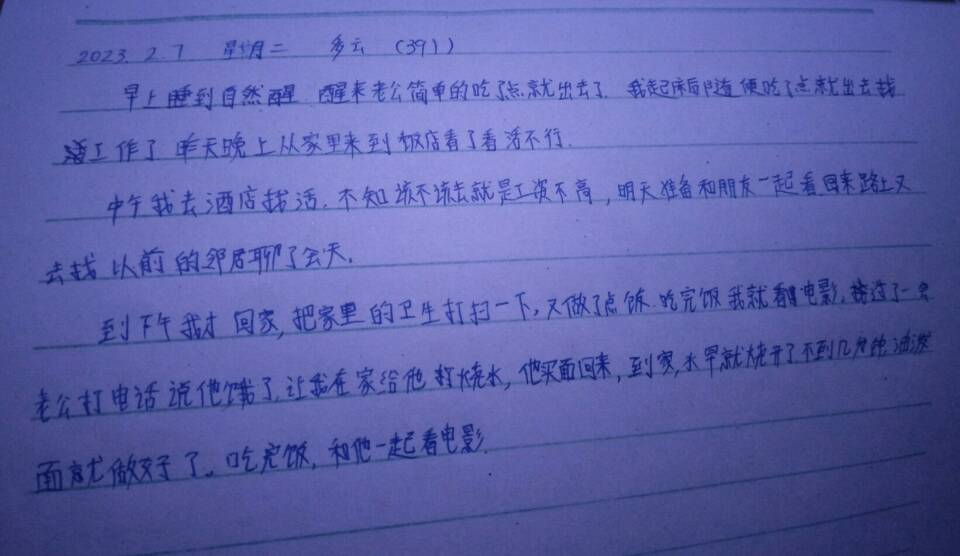 2023.2.7 星期二 多云 (391)
早上睡到自然醒 醒来老公简单的吃了点就出去了. 我起床后随便吃了点就出去找
工作了 昨天晚上从家里来到饭店看了看活不行.
中午我去酒店找活. 不知该不该去就是工资不高, 明天准备和朋友一起看 回来路上又
去找以前的邻居聊了会天.
到下午我才回家, 把家里的卫生打扫一下, 又做了点饭. 吃完饭我就看电影, 过了一会
老公打电话说他饿了, 让我在家给他烧水, 他买面回来, 到家, 水早就烧开了不到几分钟油泼
面就做好了。吃完饭, 和他一起看电影.